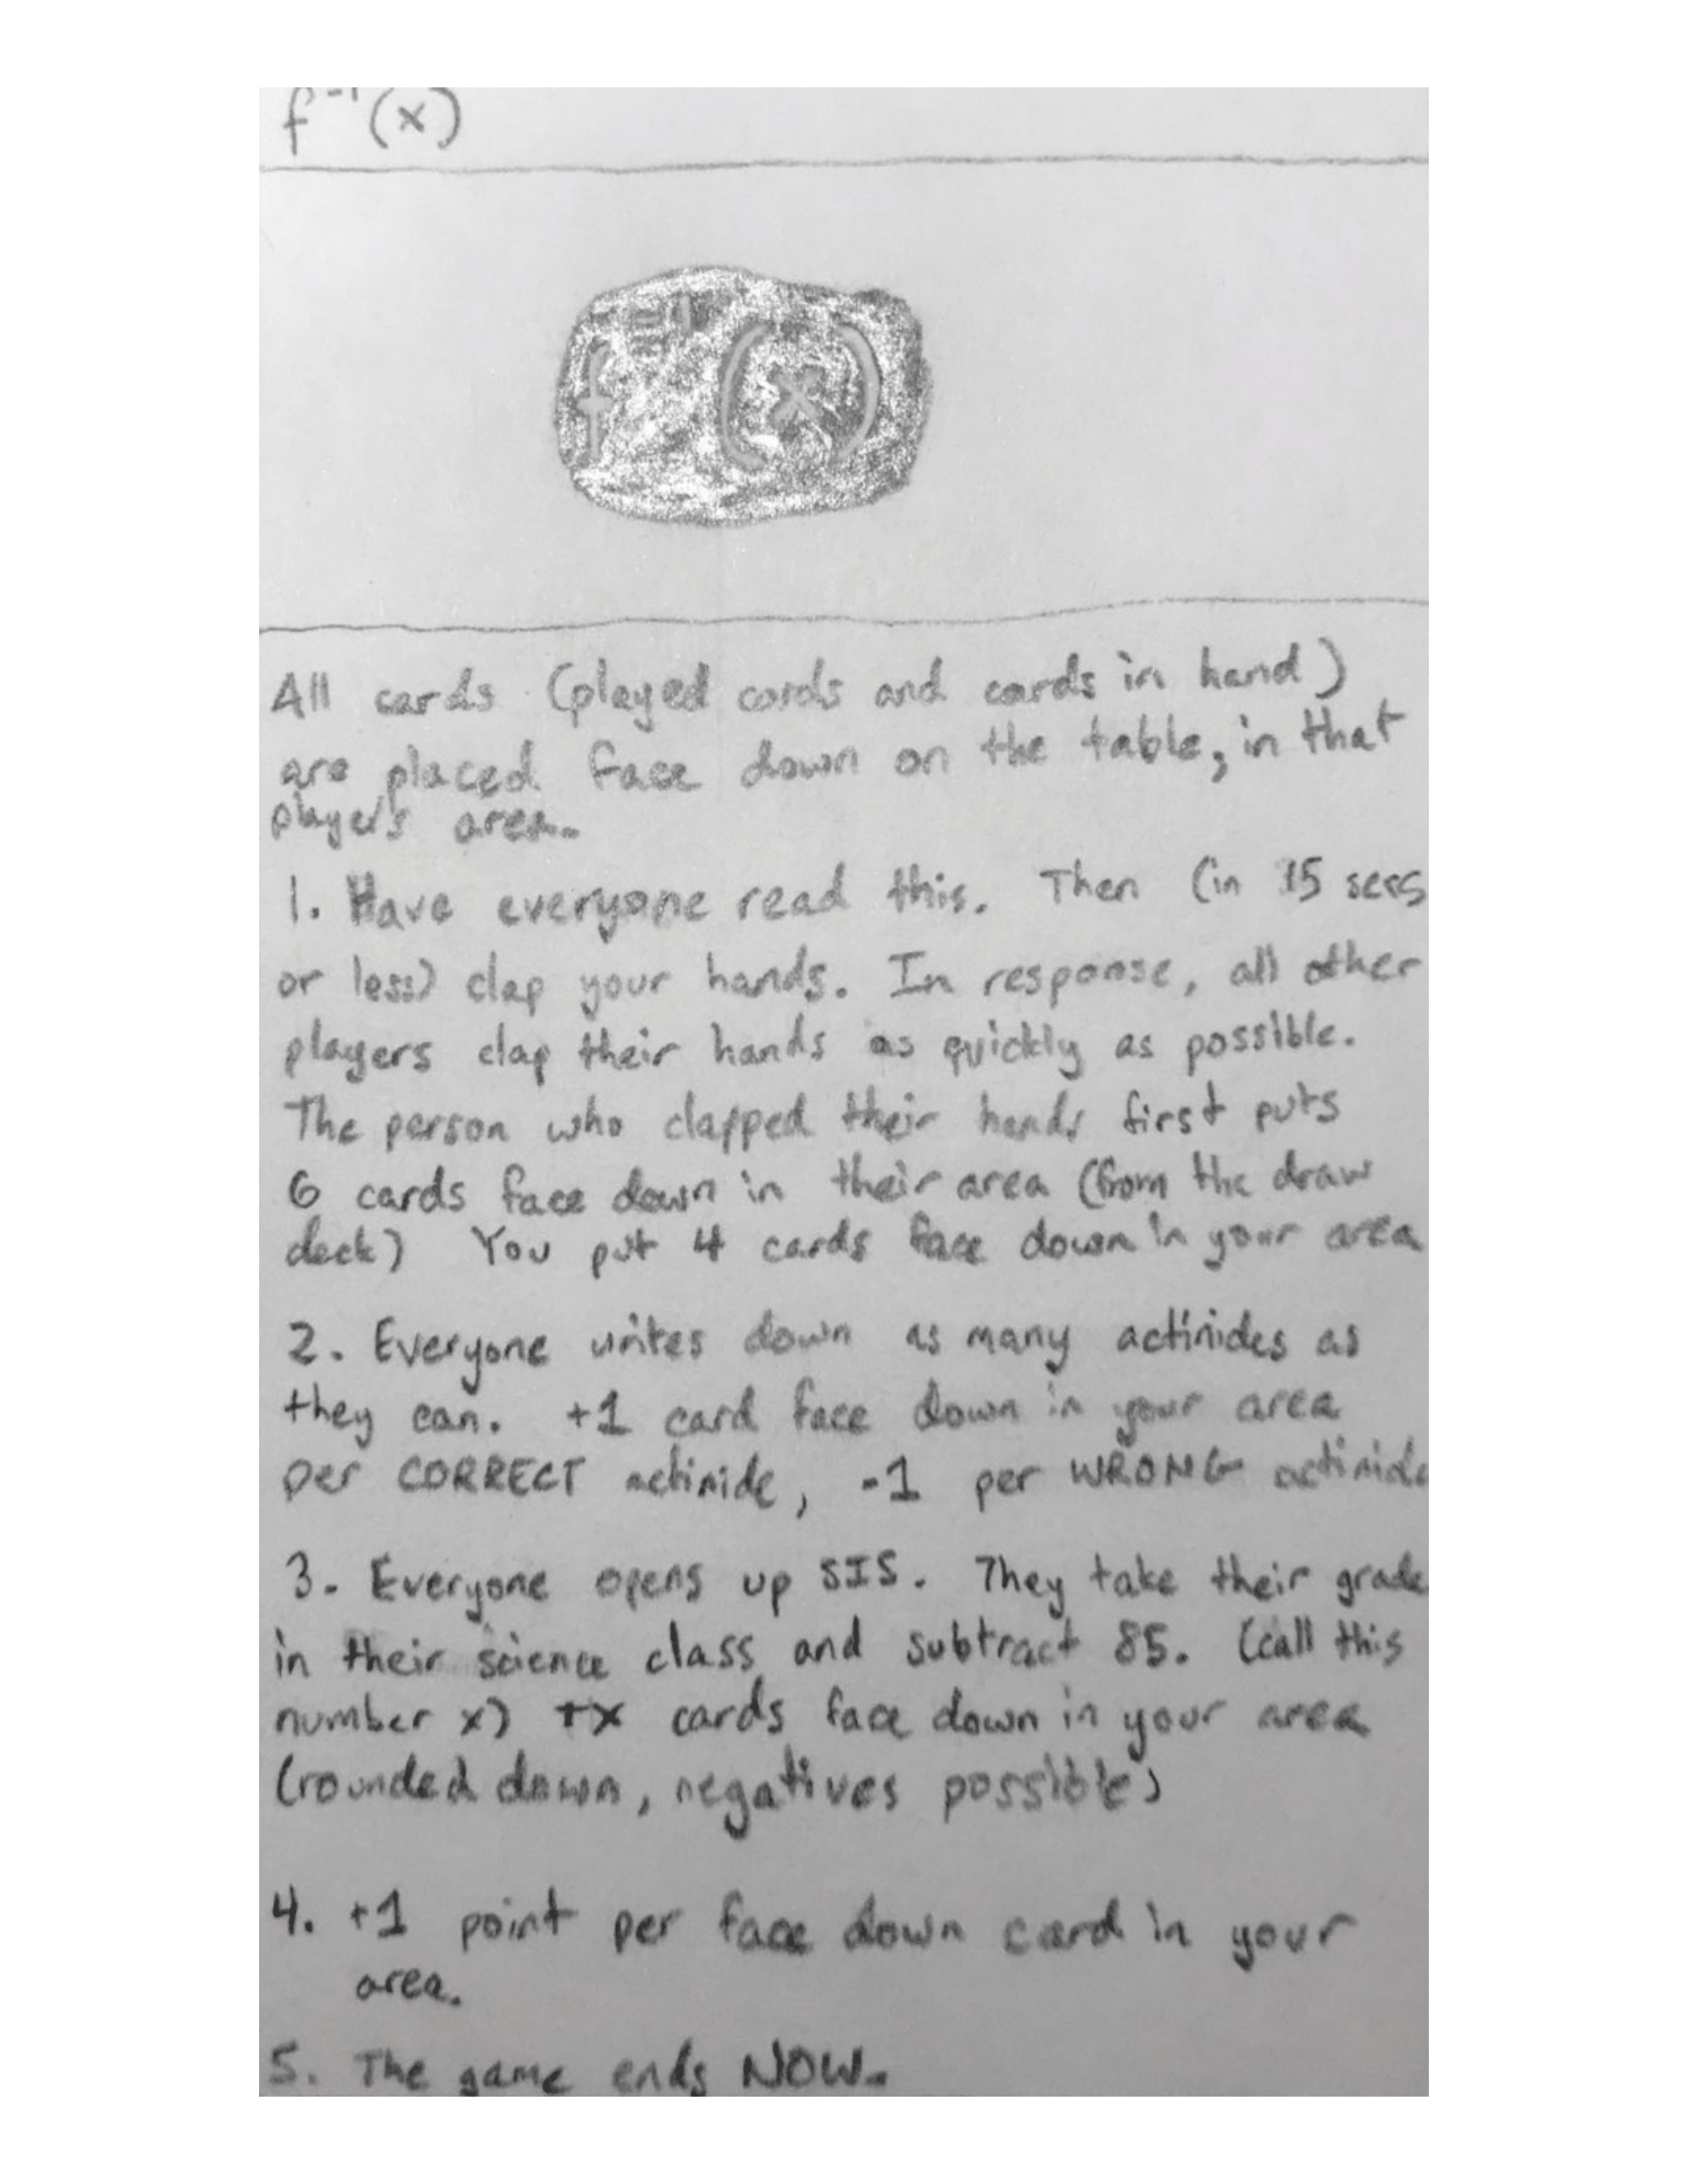 f⁻¹(x)
f⁻¹(x)
All cards (played cards and cards in hand)
are placed face down on the table, in that
player's area.
1. Have everyone read this. Then (in 15 secs
or less) clap your hands. In response, all other
players clap their hands as quickly as possible.
The person who clapped their hands first puts
6 cards face down in their area (from the draw
deck) You put 4 cards face down in your area
2. Everyone writes down as many actinides as
they can. +1 card face down in your area
per CORRECT actinide, -1 per WRONG actinide
3. Everyone opens up SIS. They take their grade
in their science class and subtract 85. (call this
number x) +x cards face down in your area
(rounded down, negatives possible)
4. +1 point per face down card in your
area.
5. The game ends NOW.